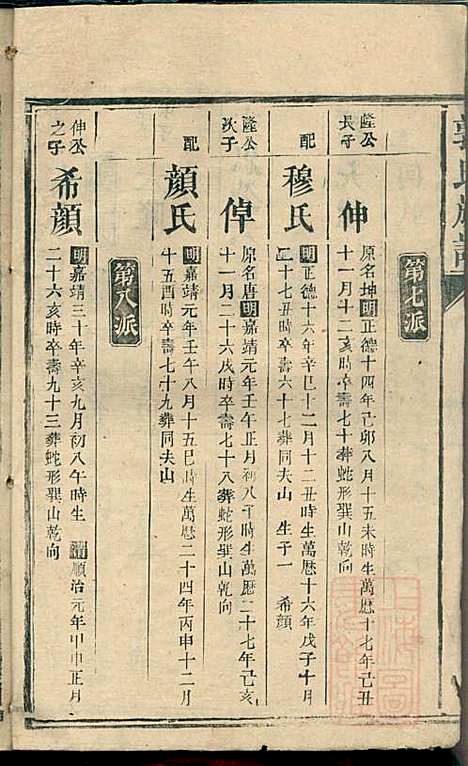 郭氏族譜
第七派
隆公長子
伸
原名坤明正德十四年己卯八月十五未時生萬曆十七年己丑
十一月十二亥時卒壽七十葬蛇形巽山乾向
配
穆氏
明正德十六年辛巳十二月十二丑時生萬曆十六年戊子十月
二十七丑時卒壽六十七葬同夫山 生子一 希顏
隆公次子
倬
原名唐明嘉靖元年壬午正月初八午時生萬曆二十七年己亥
十一月二十六戌時卒壽七十八葬蛇形巽山乾向
配
顏氏
明嘉靖元年壬午八月十五巳時生萬曆二十四年丙申十二月
十五酉時卒壽七十九葬同夫山
第八派
伸公之子
希顏
明嘉靖三十年辛亥九月初八午時生 清順治元年甲申正月
二十六亥時卒壽九十三葬蛇形巽山乾向